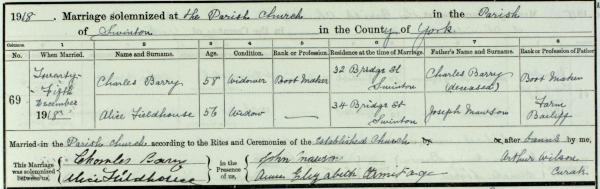 1918. Marriage solemnized at the Parish Church in the Parish
of Swinton in the County of York
Columns:— 1 2 3 4 5 6 7 8
No. When Married. Name and Surname. Age. Condition. Rank or Profession. Residence at the time of Marriage. Father's Name and Surname. Rank or Profession of Father
69
Twenty-Fifth December 1918
Charles Barry 58 Widower Boot Maker 32 Bridge St Swinton Charles Barry (deceased) Boot Maker
Alice Fieldhouse 56 Widow — 34 Bridge St Swinton Joseph Mawson Farm Bailiff
Married in the Parish Church according to the Rites and Ceremonies of the Established Church or after banns by me,
This Marriage was solemnized between us, Charles Barry Alice Fieldhouse
in the Presence of us, John Elizabeth Armitage
Arthur Wilson
Curate